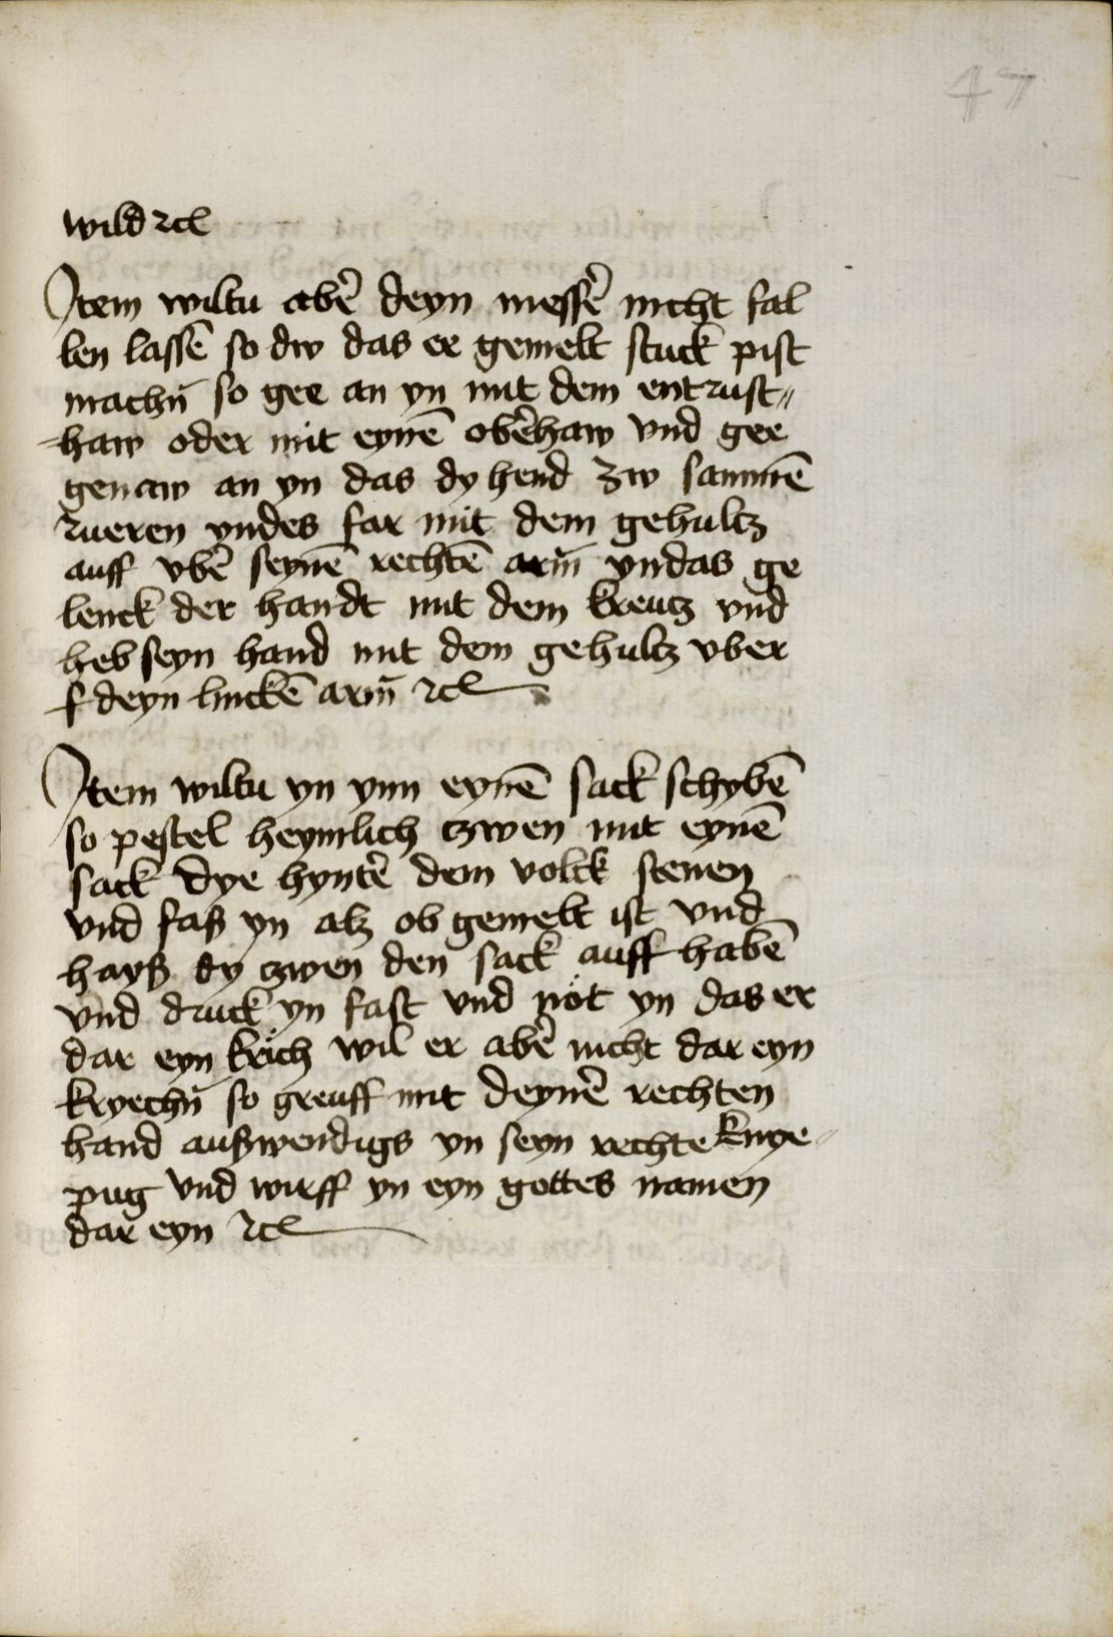 47
wild ⁊cͭ
Item wiltu abẽ deyn messẽ nicht fal
len lassẽ so dw das er gemelt stuck pist
machñ so gee an yn mit dem entrust〃
-haw oder mit eynẽ obẽhaw vnd gee
genaw an yn das dy hend zw sammẽ
rueren yndes far mit dem gehultz
auff vbẽ seynẽ rechtẽ arm̃ yn das ge
lenck der handt mit dem kreutz vnd
heb seyn hand mit dem gehultz vber
f deyn linckẽ arm̃ ⁊cͭ
Item wiltu yn ynn eynẽ sack schybẽ
so pestel heymlich czwen mit eynẽ
sack dye hyntẽ dem volck stenen
vnd faß yn alz ob gemelt ist vnd
hayß dy czwen den sack auff habẽ
vnd druck yn fast vnd nöt yn das er
dar eyn krich wil er abẽ nicht dar eyn
kryechñ so greuff mit deynẽ rechten
hand außwendigs yn seyn rechte knye-
pug vnd wirff yn eyn gottes namen
dar eyn ⁊cͭ